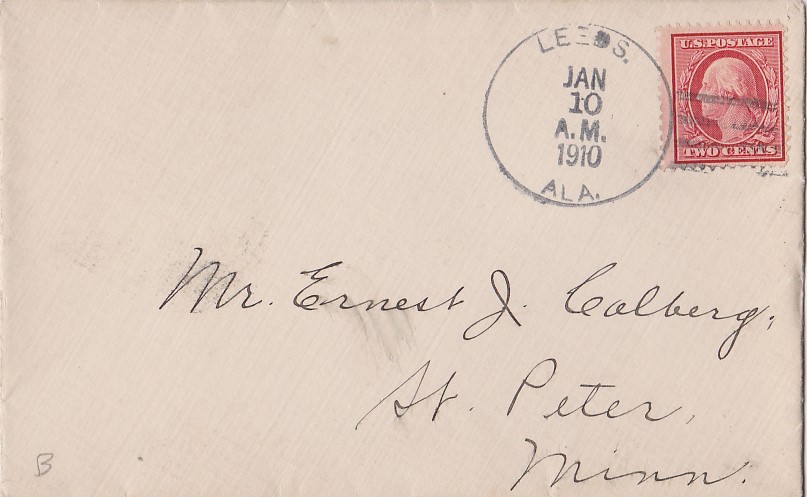 LEEDS.
JAN
10
A.M.
1910
ALA.
U.S.POSTAGE
TWO CENTS
Mr. Ernest J. Colberg,
St. Peter,
Minn.
B